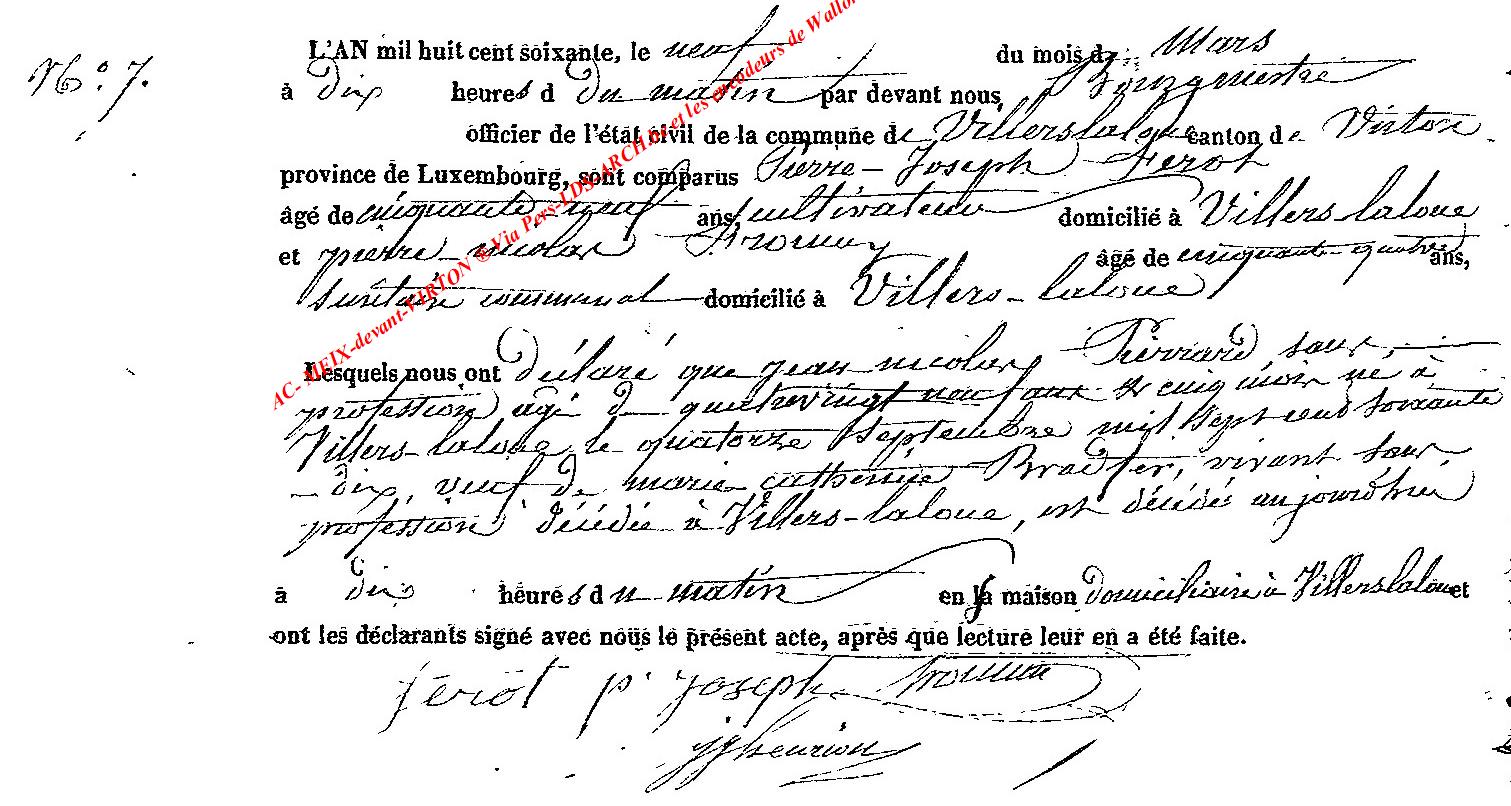 N.o 7.
L'AN mil huit cent soixante, le neuf du mois de Mars
à dix heures d du matin par devant nous, Bourgmestre
officier de l'état civil de la commune de Villerslaloue canton de Virton
province de Luxembourg, sont comparus Pierre-Joseph Ferot
âgé de cinquante neuf ans, cultivateur domicilié à Villers laloue
et pierre nicolas âgé de cinquante-quatre ans,
communal domicilié à Villers-laloue
Lesquels nous ont déclaré que jean nicolas Pierrard sans
profession agé de quatrevingt neuf ans & cinq mois né à
Villers-laloue le quatorze Septembre mil Sept cent soixante
-dix, veuf de marie catherine vivant sans
profession décédée à Villers-laloue, est décédé aujourd'hui
à dix heures du matin en la maison domiciliaire à Villerslaloue et
ont les déclarants signé avec nous le présent acte, après que lecture leur en a été faite.
ferot p. Joseph
jjhenrion
AC- MEIX-devant-VIRTON ® Via Pers-LDS-ARCH.be et les encodeurs de Wallon